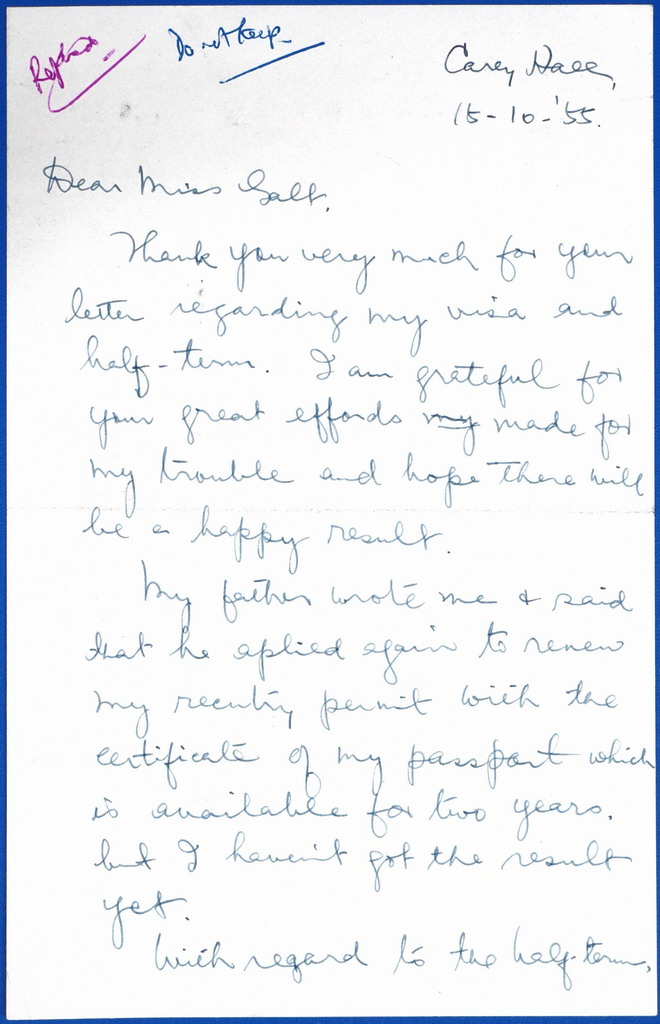 Replied
Do not keep
Carey Hall,
15-10-'55.
Dear Miss Galt,
Thank you very much for your
letter regarding my visa and
half-term. I am grateful for
your great effords my made for
my trouble and hope there will
be a happy result.
My father wrote me & said
that he aplied again to renew
my reentry permit with the
certificate of my passport which
is available for two years.
but I haven't got the result
yet.
With regard to the half-term,